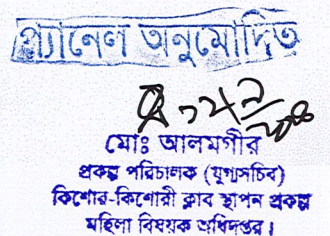 প্যানেল অনুমোদিত
মোঃ আলমগীর
প্রকল্প পরিচালক (যুগ্মসচিব)
কিশোর-কিশোরী ক্লাব স্থাপন প্রকল্প
মহিলা বিষয়ক অধিদপ্তর।